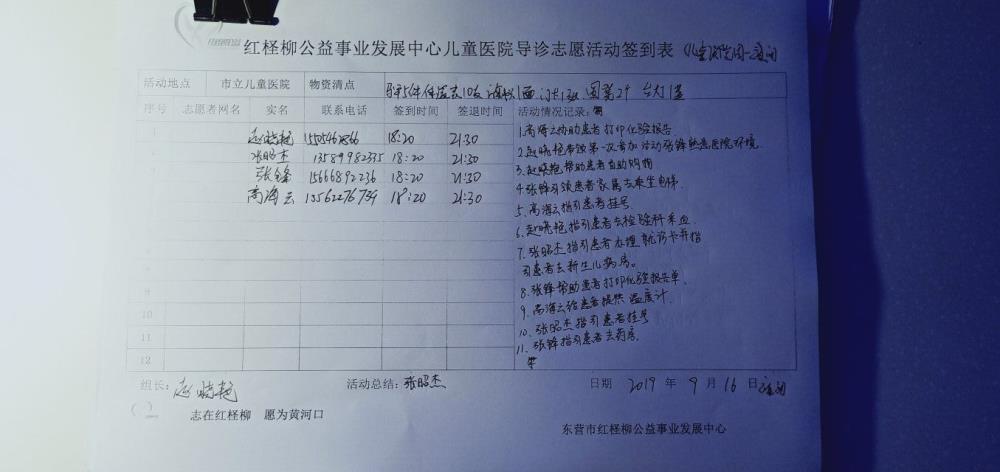 红柽柳公益事业发展中心儿童医院导诊志愿活动签到表
活动地点 市立儿童医院 物资清点
序号 志愿者网名 实名 联系电话 签到时间 签退时间 活动情况记录:
1 赵晓艳 18:20 21:30
张昭杰 13589982335 18:20 21:30
张锋 15666892236 18:20 21:30
高海云 18:20 21:30
1.高海云协助患者打印化验报告
2.赵晓艳带领第一次参加活动张锋熟悉医院环境
3.赵晓艳帮助患者自助购物
4.张锋引领患者家属去乘坐电梯
5.高海云指引患者挂号
6.赵晓艳指引患者去检验科采血
7.张昭杰指引患者办理就诊卡并指
引患者去新生儿病房。
8.张锋帮助患者打印化验报告单
9.高海云给患者提供温度计
10.张昭杰指引患者挂号
11.张锋指引患者去药房
9
10
11
12
组长:赵晓艳 活动总结:张昭杰 日期 2019 年 9 月 16 日
志在红柽柳 愿为黄河口
东营市红柽柳公益事业发展中心